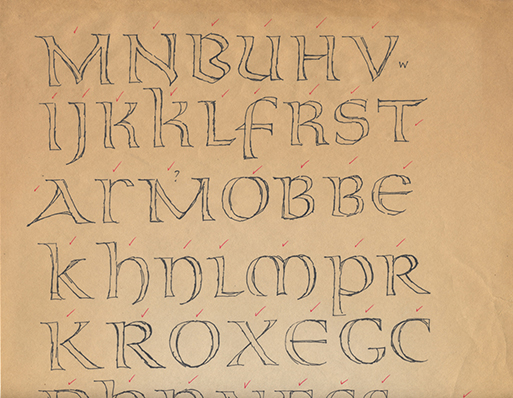 MNBUHVw
IJKkLfRST
Ar?MOBBE
khnLmpR
KROXEGC